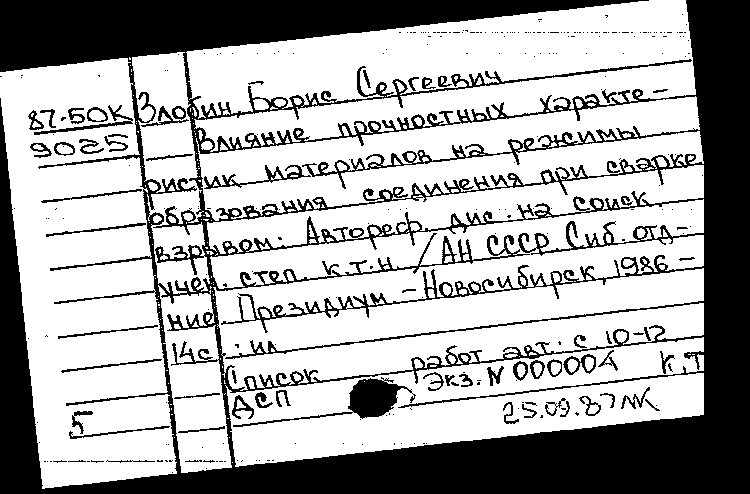 87-50К Злобин, Борис Сергеевич
9025 Влияние прочностных характе-
ристик материалов на режимы
образования соединения при сварке
взрывом: Автореф. дис. на соиск.
учен. степ. к.т.н / АН СССР. Сиб. отд-
ние. Президиум. - Новосибирск, 1986 -
14с. : ил.
Список работ авт.: с 10-12
ДСП Экз. N 000004 К.Т
5 25.09.87